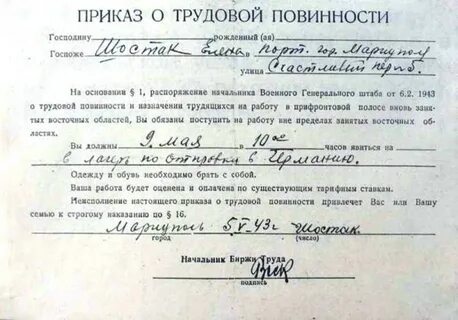 ПРИКАЗ О ТРУДОВОЙ ПОВИННОСТИ
Господину рожденный (ая)
Госпоже Шостак Елена в порт. гор. Мариуполь
улица Счастливый
На основании § 1, распоряжение начальника Военного Генерального штаба от 6.2. 1943
о трудовой повинности и назначении трудящихся на работу в прифронтовой полосе вновь заня-
тых восточных областей, Вы обязаны поступить на работу вне пределах занятых восточных об-
ластях.
Вы должны 9. мая в 10 00 часов явиться на
в лагерь по отправки в Германию.
Одежду и обувь необходимо брать с собой.
Ваша работа будет оценена и оплачена по существующим тарифным ставкам.
Неисполнение настоящего приказа о трудовой повинности привлечет Вас или Вашу
семью к строгому наказанию по § 16.
Мариуполь 5/V-43г Шостак.
город (число)
Начальник Биржи Труда
подпись